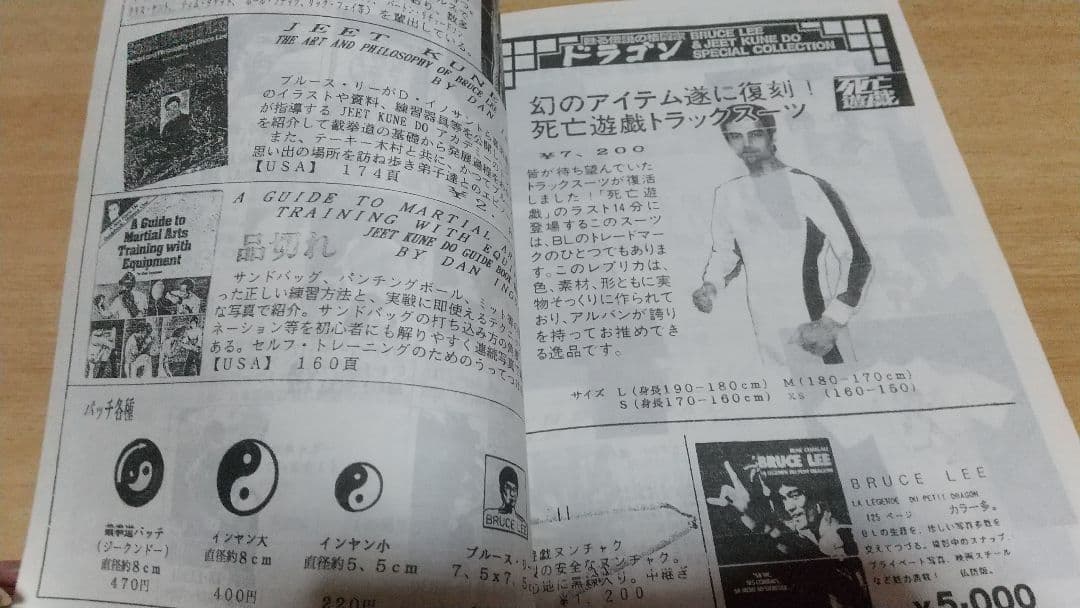 を輩出している。
JEET KUN
THE ART AND PHILOSOPHY OF BRUCE LEE
BY DAN
ブルース・リーがD・イノサントら
のイラストや資料、練習器具等を公開。
が指導する JEET KUNE DO アカデミー
を紹介して截拳道の基礎から発展過程を
また、ターキー木村と共に、かつて
思い出の場所を訪ね歩き弟子達との
【USA】 174頁
A Guide to
Martial Arts
Training with
Equipment
A GUIDE TO MARTIAL AR
TRAINING WITH EQU
JEET KUNE DO GUIDE BOOK
BY DAN INO
品切れ
サンドバッグ、パンチングボール、ミット
った正しい練習方法と、実戦に即使えるテク
な写真で紹介。サンドバッグの打ち込み方の
ネーション等を初心者にも解りやすく連続写真で
ある。セルフ・トレーニングのためのうってつけ
【USA】 160頁
バッチ各種
截拳道バッチ
(ジークンドー)
直径約8cm
470円
インヤン大
直径約8cm
400円
インヤン小
直径約5、5cm
220円
BRUCE LEE
ブルース・リ
7、5x7、5
甦る伝説の格闘家
ドラゴン
BRUCE LEE
& JEET KUNE DO
SPECIAL COLLECTION
死亡
遊戯
幻のアイテム遂に復刻!
死亡遊戯トラックスーツ
¥7、200
皆が待ち望んでいた
トラックスーツが復活
しました!「死亡遊
戯」のラスト14分に
登場するこのスーツ
は、BLのトレードマー
クのひとつでもありま
す。このレプリカは、
色、素材、形ともに実
物そっくりに作られて
おり、アルバンが誇り
を持ってお推めでき
る逸品です。
サイズ L(身長190-180cm) M(180-170cm)
S(身長170-160cm) XS (160-150)
戯ヌンチャク
の安全なヌンチャク。
地に黒線入り。中継ぎ
¥1、200
BRUCE LEE
LA LEGENDE DU PETIT DRAGON
BRUCE LEE
LA LEGENDE DU PETIT DRAGON
125 ページ カラー多。
BLの生涯を、珍しい写真多数を
交えてつづる。撮影中のスナップ、
プライベート写真、映画スチール
など魅力満載! 仏語版。
¥5,000